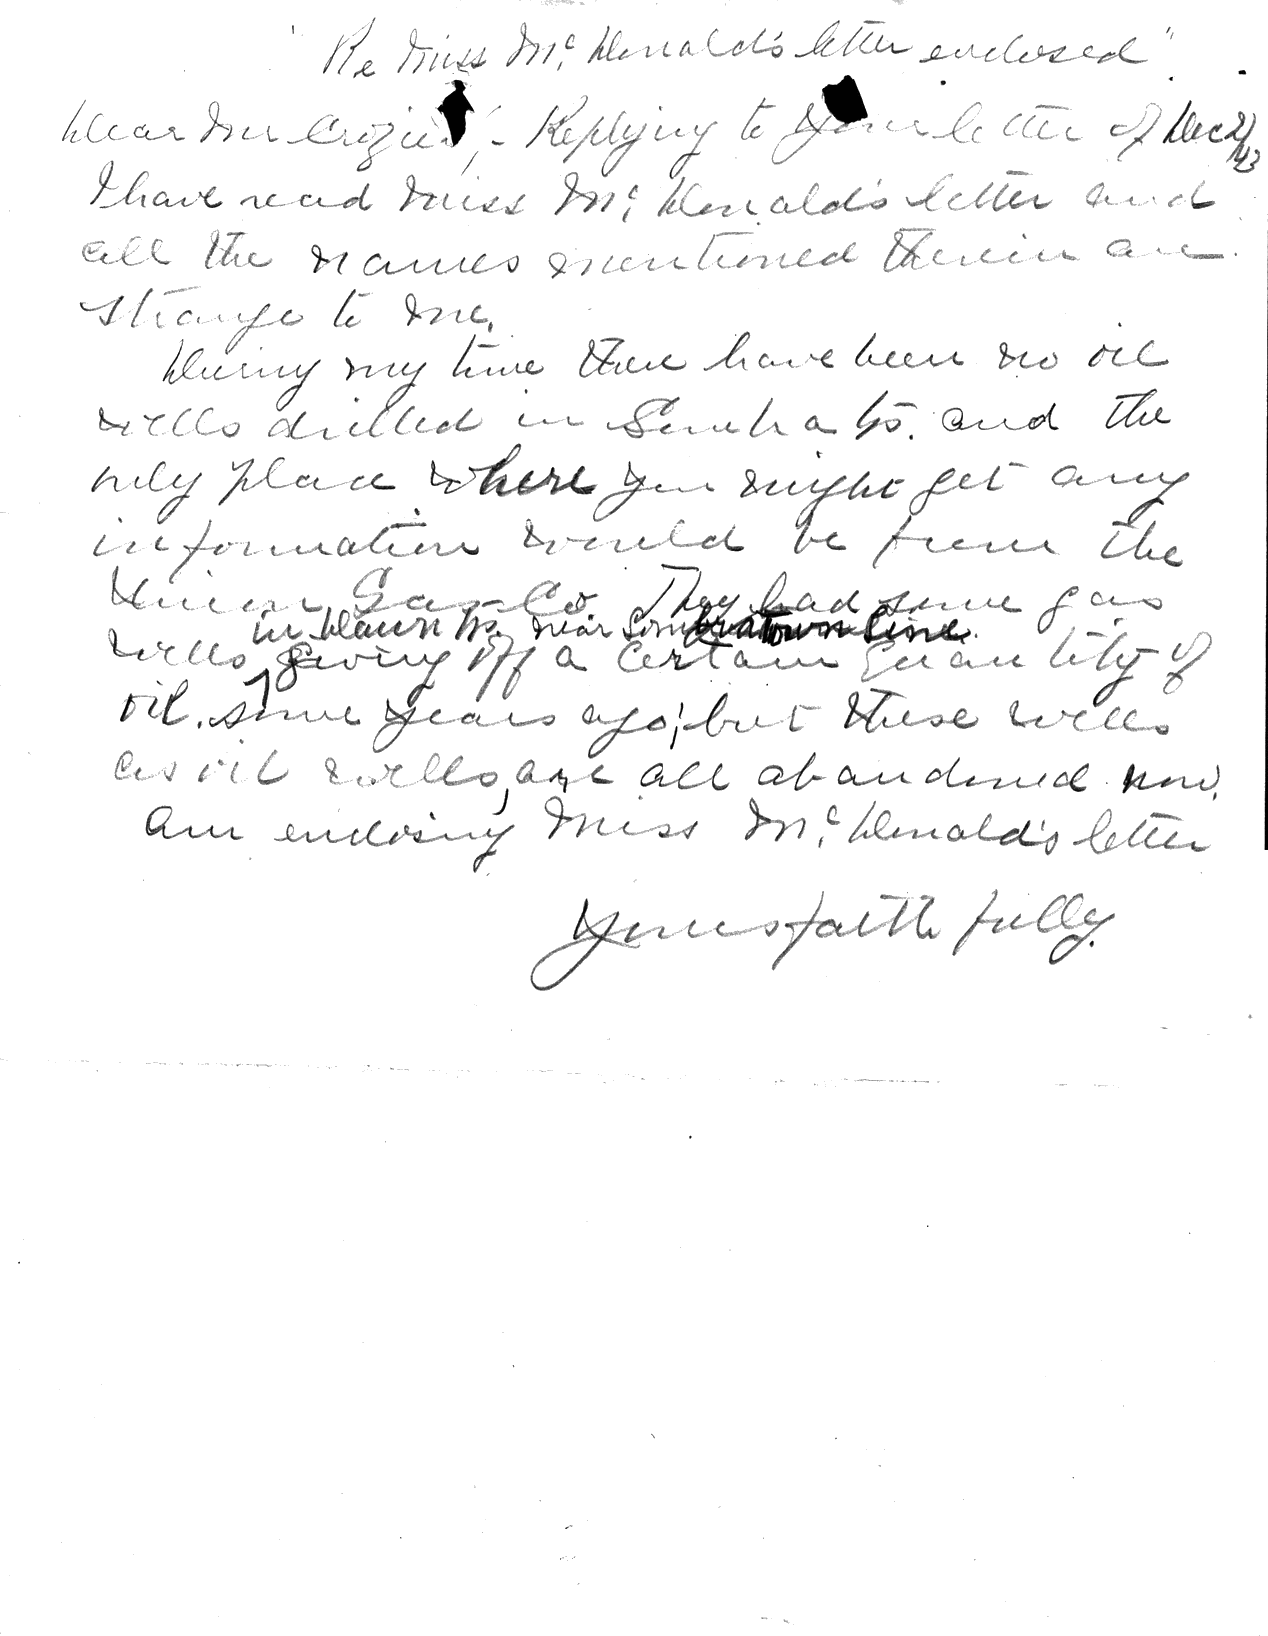 "Re Miss Mc Donald's letter enclosed"
Dear Mr Crozier;- Replying to your letter of Dec 2/43
I have read Miss Mc Donald's letter and
all the names mentioned therein are
strange to me.
During my time there have been no oil
wells drilled in Sombra Tp. and the
only place where you might get any
information would be from the
Union Gas Co. They had some gas
in Dawn Tp. near Sombra Town Line.
wells giving off a certain quantity of
oil. some years ago; but these wells
as oil wells, are all abandoned now.
Am enclosing Miss Mc Donald's letter
Yours faithfully.